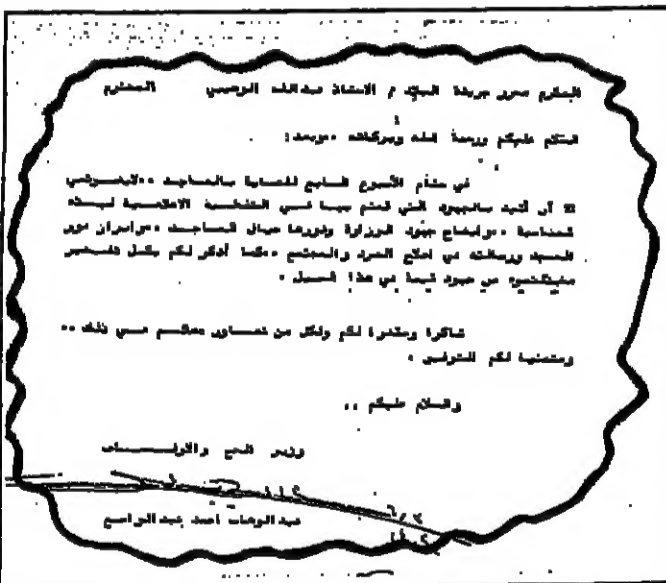 المكرم محرر جريدة البلاد م الاستاذ عبدالله الرحيمي المحترم
السلام عليكم ورحمة الله وبركاته ٠٠وبعد :
في ختام الأسبوع السابع للعناية بالمساجد ٠٠لايسرني
أن أشيد بالجهود التي قمتم بها في التغطية الاعلامية لهذه
المناسبة ٠٠وايضاح جهود الوزارة ودورها حيال المساجد ٠٠وابراز دور
المسجد ورسالته في اصلاح الفرد والمجتمع ٠٠كما أذكر لكم بكل تقدير
من جهود قيمة في هذا السبيل ٠
شاكرا ومقدرا لكم ولكل من تعاون معكم في ذلك ٠٠
ومتمنيا لكم التوفيق ٠
والسلام عليكم ،،
وزير الحج والاوقاف
عبدالوهاب احمد عبدالواسع